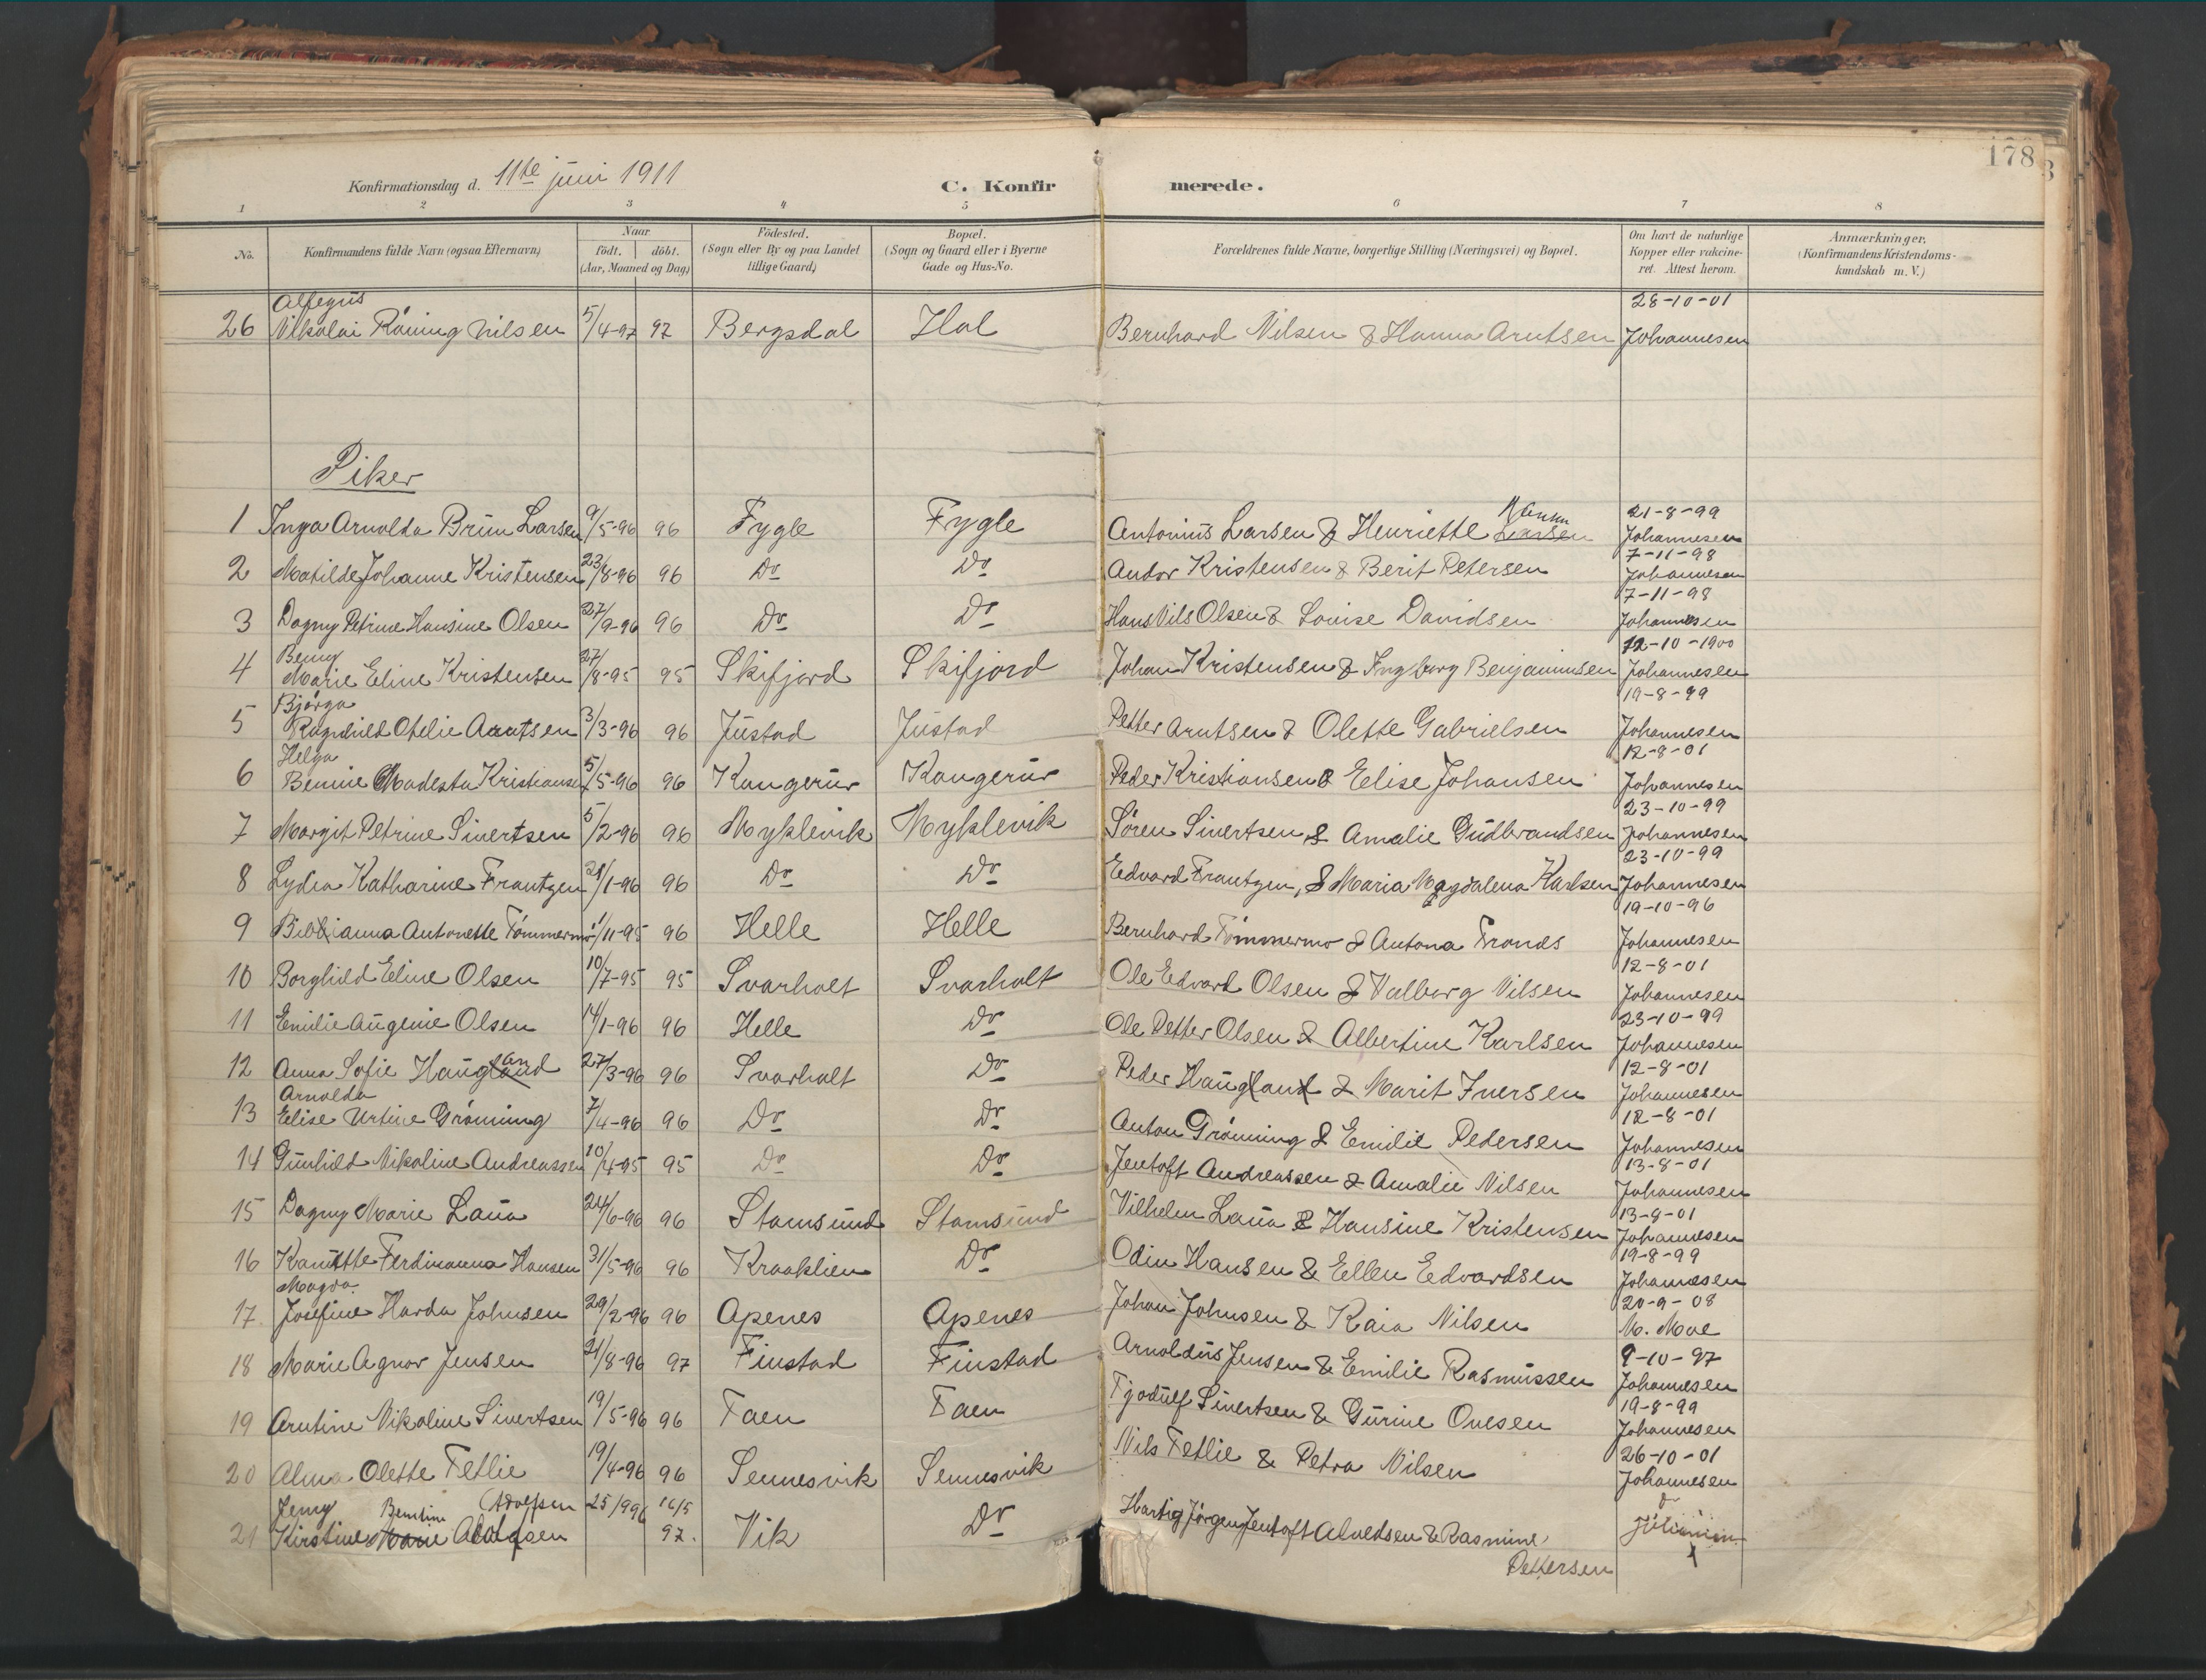 178
Konfirmationsdag d. 11te juni 1911 C. Konfirmerede.
1 2 3 4 5 6 7 8
No. Konfirmandens fulde Navn (ogsaa Efternavn) Naar født. døbt. (Aar, Maaned og Dag) Födested. (Sogn eller By og paa Landet tillige Gaard) Bopæl. (Sogn og Gaard eller i Byerne Gade og Hus-No. Forældrenes fulde Navne, borgerlige Stilling (Næringsvei) og Bopæl. Om havt de naturlige Kopper eller vakcineret. Attest herom. Anmærkninger. (Konfirmandens Kristendomskundskab m. V.)
Alfegus 28-10-01
26 Nikolai Röning Nilsen 5/4-97 97 Bergsdal Hol Bernhard Nilsen & Hanna Arntsen Johannesen
Piker
1 Inga Arnolda Brun Larsen 9/5-96 96 Fygle Fygle Antonius Larsen & Henriette Larsen 21-8-99 Johannesen
2 Matilde Johanne Kristensen 23/8-96 96 Do Do Andor Kristensen & Berit Petersen 7-11-98 Johannesen
3 Dagny Petrine Hansine Olsen 27/9-96 96 Do Do Hans Nils Olsen & Lovise Davidsen 7-11-98 Johannesen
Benny
4 Marie Eline Kristensen 27/8-95 95 Skifjord Skifjord Johan Kristensen & Ingborg Benjaminsen 12-10-1900 Johannesen
Bjørga
5 Ragnhild Otelie Arntsen 3/3-96 96 Justad Justad Petter Arntsen & Olette Gabrielsen 19-8-99 Johannesen
Helga
6 Benine Modesta Kristiansen 5/5-96 96 Kangerur Kangerur Peder Kristiansen & Elise Johansen 12-8-01 Johannesen
7 Margit Petrine Sivertsen 5/2-96 96 Myklevik Myklevik Søren Sivertsen & Amalie Gudbrandsen 23-10-99 Johannesen
8 Lydia Katharine Frantzen 31/1-96 96 Do Do Edvard Frantzen, & Maria Magdalena Karlsen 23-10-99 Johannesen
9 Bibianna Antonette Tømmermo 1/11-95 96 Helle Helle Bernhard Tømmermo & Antona Tronds 19-10-96 Johannesen
10 Borghild Eline Olsen 10/7-95 95 Svarholt Svarholt Ole Edvard Olsen & Valborg Nilsen 12-8-01 Johannesen
11 Emilie Augenie Olsen 14/1-96 96 Helle Do Ole Petter Olsen & Albertine Karlsen 23-10-99 Johannesen
12 Anna Sofie Haugland an 27/3-96 96 Svarholt Do Peder Haugland & Marit Iversen 12-8-01 Johannesen
Arnolda
13 Elise Urtine Grønning 7/4-96 96 Do Do Anton Grønning & Emilie Pedersen 12-8-01 Johannesen
14 Gunhild Nikoline Andreassen 10/4-95 95 Do Do Jentoft Andreassen & Amalie Nilsen 13-8-01 Johannesen
15 Dagny Marie Laua 24/6-96 96 Stamsund Stamsund Vilhelm Laua & Hansine Kristensen 13-9-01 Johannesen
16 Ferdinanna Hansen 31/5-96 96 Kraaklien Do Odin Hansen & Ellen Edvardsen 19-8-99 Johannesen
Magda
17. Josefine Harda Johnsen 29/2-96 96 Apenes Apenes Johan Johnsen & Kaia Nilsen 20-9-08 M. Moe
18 Marie Agnor Jensen 31/8-96 97 Finstad Finstad Arnoldus Jensen & Emilie Rasmussen 9-10-97 Johannesen
19 Arntine Nikoline Sivertsen 19/5-96 96 Taen Taen Tjodulf Sivertsen & Gurine Ovesen 19-8-99 Johannesen
20 Alma Olette Fetlie 19/4-96 96 Sennesvik Sennesvik Nils Fetlie & Petra Nilsen 26-10-01 Johannesen
Jenny Bentine (Adolfsen 25/9 96 16/5
21 Kirstine Marie 97. Vik Do Hartvig Jørgen Jentoft Alvedsen & Rasmine
Pettersen